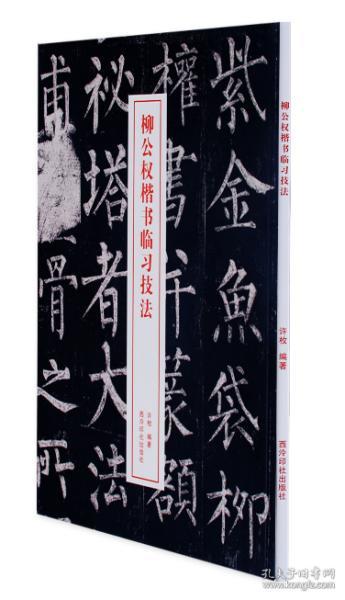 紫金魚袋柳
權書并篆額
祕塔者大法
甫
骨之所
柳公权楷书临习技法
许枚 编著
西泠印社出版社
柳公权楷书临习技法
许枚 编著
西泠印社出版社
孔夫子旧书网